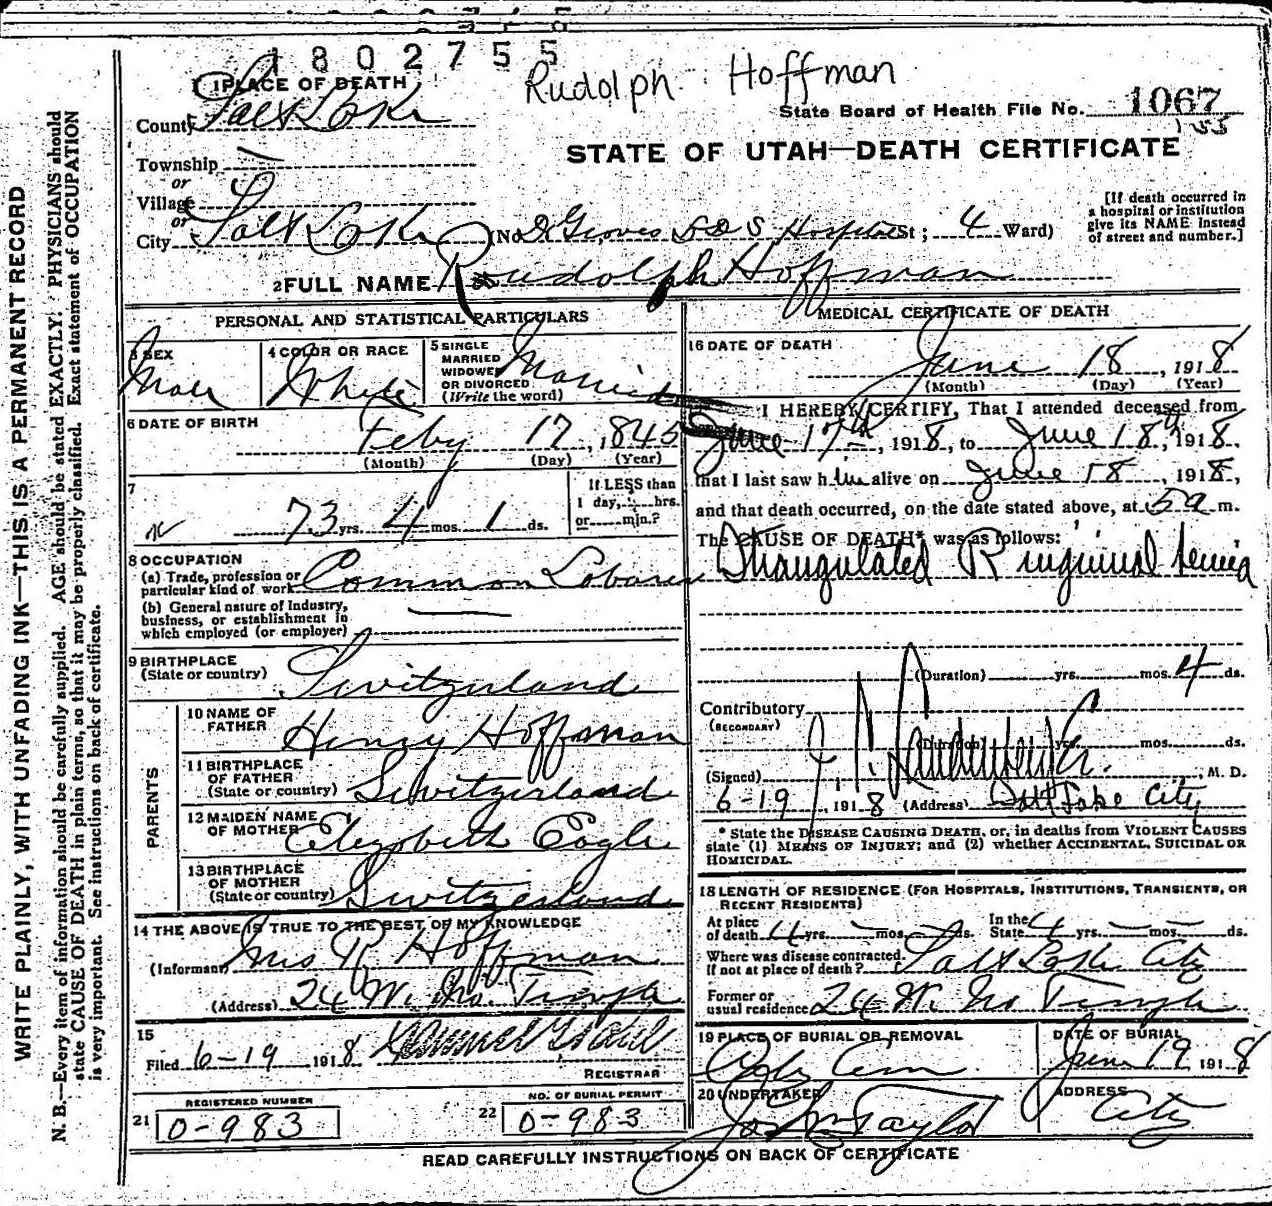 1802755
Rudolph Hoffman
1 PLACE OF DEATH
County Salt Lake
State Board of Health File No. 1067
155
STATE OF UTAH—DEATH CERTIFICATE
Township —
or
Village
or
City Salt Lake (No. Dr Groves L D S Hospital St; 4 Ward)
[If death occurred in a hospital or institution give its NAME instead of street and number.]
2 FULL NAME Roudolph Hoffman
PERSONAL AND STATISTICAL PARTICULARS
3 SEX Male
4 COLOR OR RACE White
5 SINGLE MARRIED WIDOWED OR DIVORCED (Write the word) Married
6 DATE OF BIRTH Feby 17, 1845
(Month) (Day) (Year)
7 73 yrs. 4 mos. 1 ds.
If LESS than 1 day, hrs. or min.?
8 OCCUPATION
(a) Trade, profession or particular kind of work Common Laborer
(b) General nature of industry, business, or establishment in which employed (or employer) —
9 BIRTHPLACE (State or country) Switzerland
PARENTS
10 NAME OF FATHER Henry Hoffman
11 BIRTHPLACE OF FATHER (State or country) Switzerland
12 MAIDEN NAME OF MOTHER Elizabeth Eagle
13 BIRTHPLACE OF MOTHER (State or country) Switzerland
14 THE ABOVE IS TRUE TO THE BEST OF MY KNOWLEDGE
(Informant) Mrs R Hoffman
(Address) 24 W. No. Temple
15
Filed 6-19 1918
REGISTRAR
REGISTERED NUMBER
21 0-983
NO. OF BURIAL PERMIT
22 0-983
MEDICAL CERTIFICATE OF DEATH
16 DATE OF DEATH June 18, 1918
(Month) (Day) (Year)
I HEREBY CERTIFY, That I attended deceased from
June 17th, 1918, to June 18th, 1918,
that I last saw him alive on June 18, 1918,
and that death occurred, on the date stated above, at 5 a m.
The CAUSE OF DEATH* was as follows:
Strangulated R inguinal hernia
(Duration) yrs. mos. 4 ds.
Contributory
(SECONDARY)
(Duration) yrs. mos. ds.
(Signed) , M. D.
6-19, 1918 (Address) Salt Lake City
* State the DISEASE CAUSING DEATH, or, in deaths from VIOLENT CAUSES
state (1) MEANS OF INJURY; and (2) whether ACCIDENTAL, SUICIDAL OR
HOMICIDAL.
18 LENGTH OF RESIDENCE (FOR HOSPITALS, INSTITUTIONS, TRANSIENTS, OR
RECENT RESIDENTS)
At place of death 4 yrs. — mos. — ds. In the State 4 yrs. — mos. — ds.
Where was disease contracted, if not at place of death? Salt Lake City
Former or usual residence 24 W. No Temple
19 PLACE OF BURIAL OR REMOVAL
City Cem.
DATE OF BURIAL
June 19 1918
20 UNDERTAKER
Taylor
ADDRESS
City
READ CAREFULLY INSTRUCTIONS ON BACK OF CERTIFICATE
WRITE PLAINLY, WITH UNFADING INK—THIS IS A PERMANENT RECORD
N. B.—Every item of information should be carefully supplied. AGE should be stated EXACTLY. PHYSICIANS should
state CAUSE OF DEATH in plain terms, so that it may be properly classified. Exact statement of OCCUPATION
is very important. See instructions on back of certificate.